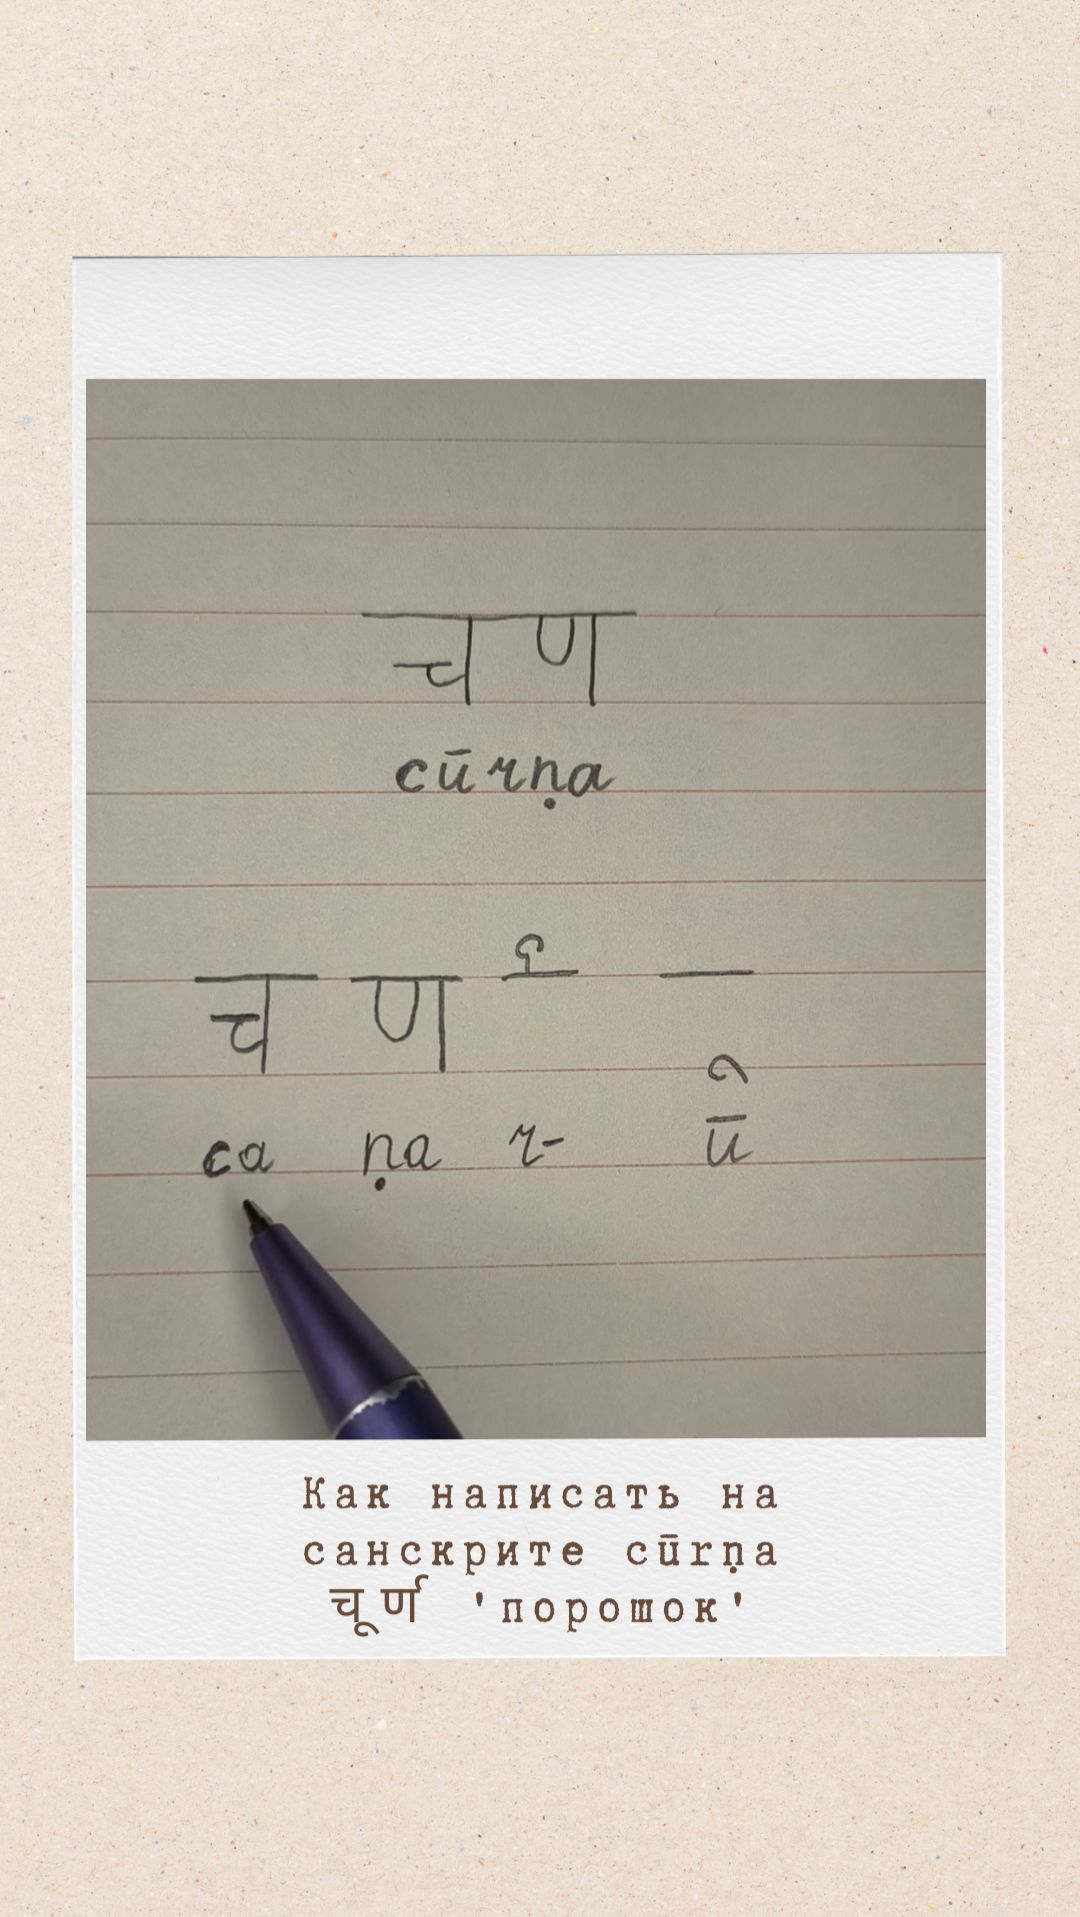 चण
cūrṇa
च ण र् ू
ca ṇa r- ū
Как написать на
санскрите cūrṇa
चूर्ण 'порошок'